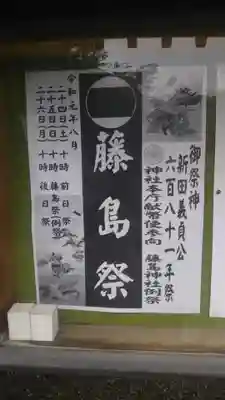 御祭神
新田義貞公
六百八十一年祭
神社本庁献幣使参向 藤島神社例祭
藤島祭
令和元年八月
二十四日(土)十時 前日祭
二十五日(日)十時 藤島祭例祭
二十六日(月)十時 後日祭